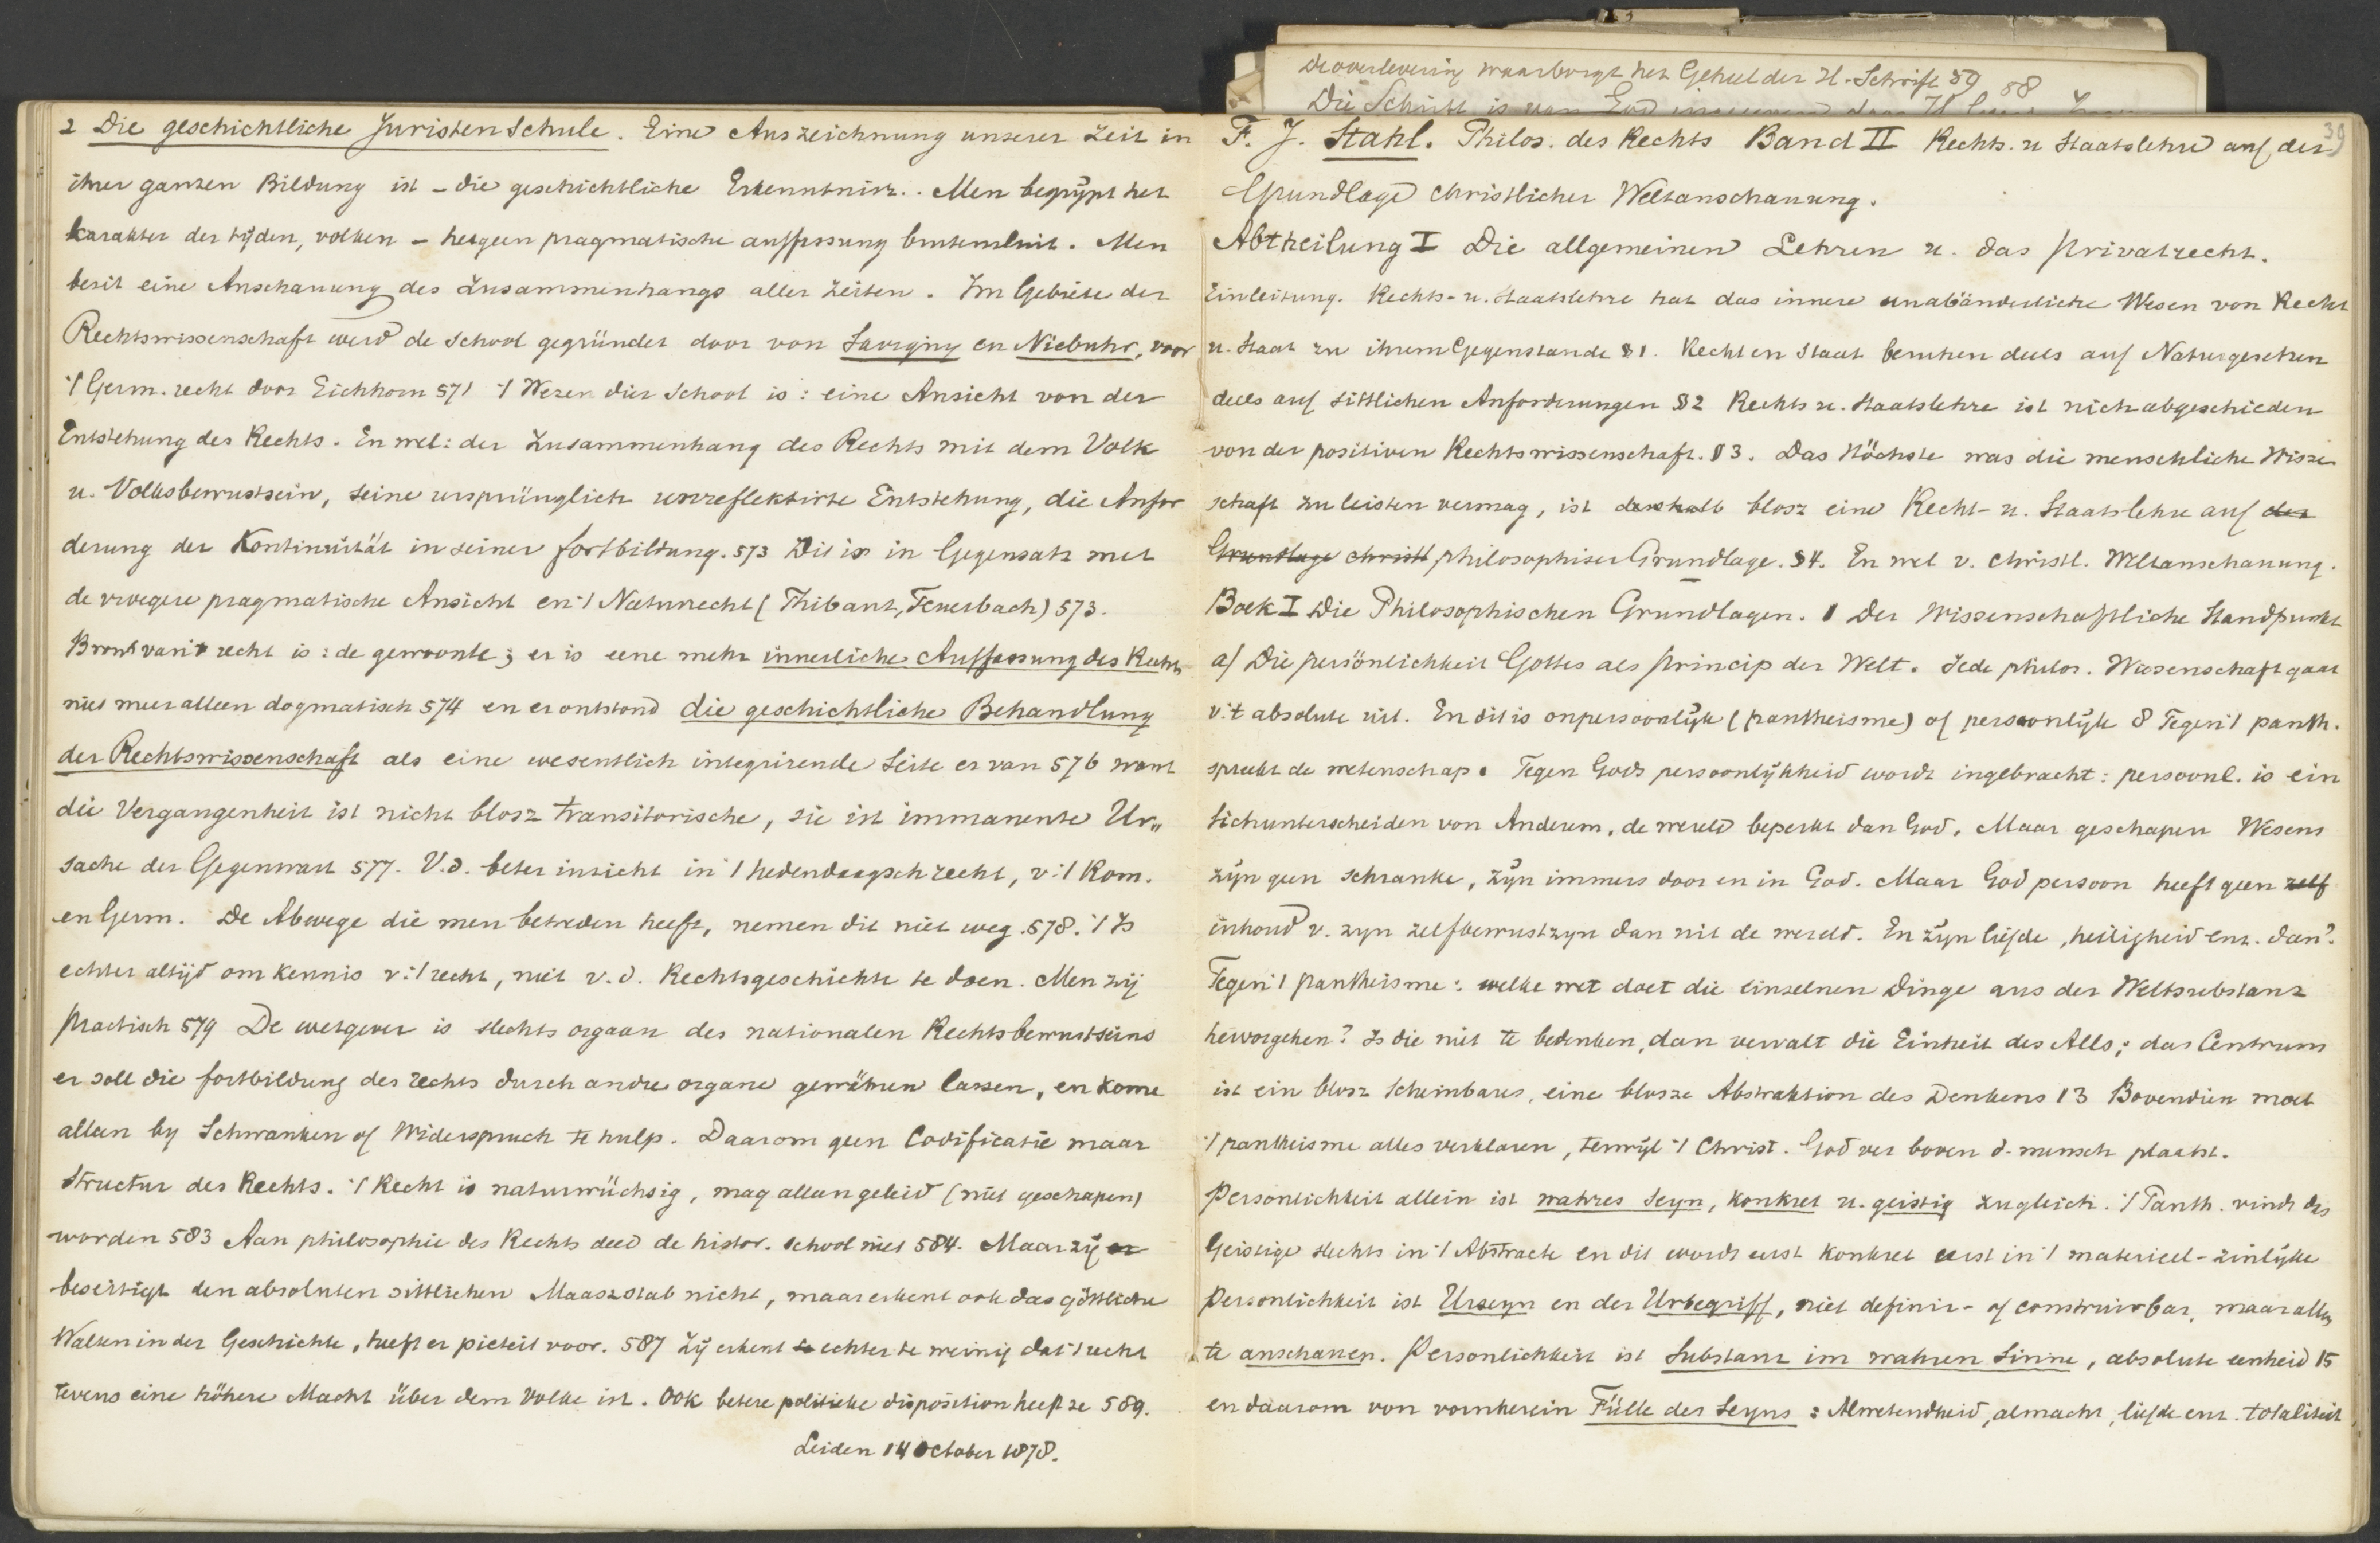 2 Die geschichtliche Juristen Schule. Eine Auszeichnung unserer Zeit in
ihrer ganzen Bildung ist – die geschichtliche Erkenntnisz.. Men begrijpt het
karakter der tijden, volken – hetgeen pragmatische auffassung buitensluit. Men
bezit eine Anschauung des Zusammenhangs aller Zeiten. Im Gebiete der
Rechtswissenschaft werd de school gegründet door von Savigny en Niebuhr, voor
't Germ. recht door Eichhorn 571 't Wezen dier School is: eine Ansicht von der
Entstehung des Rechts. En wel: der Zusammenhang des Rechts mit dem Volk
u. Volksbewustsein, seine ursprünglich unreflektirte Entstehung, die Anfor
derung der Kontinuität in seiner fortbildung. 573 Dit is in Gegensatz met
de vroegere pragmatische Ansicht en 't Naturrecht (Thibaut, Feuerbach) 573.
Bron van 't recht is: de gewoonte; er is eene mehr innerliche Auffassung des Rechts
niet meer alleen dogmatisch 574 en er ontstond die geschichtliche Behandlung
der Rechtswissenschaft als eine wesentlich integrirende Seite er van 576 want
die Vergangenheit ist nicht blosz transitorische, sie ist immanente Ur„
sache der Gegenwart 577. V.d. beter inzicht in 't hedendaagsch recht, v. 't Rom.
en Germ. De Abwege die men betreden heeft, nemen dit niet weg. 578. 't Is
echter altijd om kennis v. 't recht, niet v. d. Rechtsgeschichte te doen. Men zij
practisch 579 De wetgever is slechts orgaan des nationalen Rechtsbewustseins
er soll die fortbildung des rechts durch andre organe gewähren lassen, en kome
alleen by Schwanken of Widerspruch te hulp. Daarom geen Codificatie maar
Structur des Rechts. 't Recht is naturwüchsig, mag alleen geleid (niet geschapen)
worden 583 Aan philosophie des Rechts deed de histor. school niet 584. Maar zij er
beseitigt den absoluten sittlichen Maaszstab nicht, maar erkent ook das göttliche
Walten in der Geschichte, heeft er pieteit voor. 587 Zij erkent te echter te weinig dat 't recht
tevens eine höhere Macht über dem Volke ist. Ook betere politieke disposition heeft ze 589.
Leiden 14 October 1878.
De overlevering waarborgt het Geheel der H. Schrift 59 58
Die Schrift is van God
39
F. J. Stahl. Philos. des Rechts Band II Rechts. u Staatslehre auf der
Grundlage christlicher Weltanschauung.
Abtheilung I Die allgemeinen Lehren u. das Privatrecht.
Einleitung. Rechts- u. Staatslehre hat das innere unabänderliche Wesen von Recht
u. Staat zu ihrem Gegenstande § 1. Recht en Staat beruhen deels auf Naturgesetzen
deels auf sittlichen Anforderungen § 2 Rechts u. Staatslehre ist nich abgeschieden
von der positiven Rechtswissenschaft. § 3. Das Höchste was die menschliche Wissen
schaft zu leisten vermag, ist deshalb blosz eine Recht- u. Staatslehre auf der
Grundlage christl philosophiser Grundlage. § 4. En wel v. christl. Weltanschauung.
Boek I Die Philosophischen Grundlagen. 1 Der Wissenschaftliche Standpunkt
a) Die persönlichkeit Gottes als Princip der Welt. Jede philos. Wissenschaft gaat
v. 't absolute uit. En dit is onpersoonlijk (pantheisme) of persoonlijk 8 Tegen 't panth.
spreekt de wetenschap. Tegen Gods persoonlijkheid wordt ingebracht: persoonl. is ein
sichunterscheiden von Anderem, de wereld beperkt dan God. Maar geschapen Wesens
zijn geen schranke, zijn immers door en in God. Maar God persoon heeft geen zelf
inhoud v. zyn zelfbewustzyn dan uit de wereld. En zijn liefde, heiligheid enz. dan?
Tegen 't pantheisme: welke wet doet die einzelnen Dinge aus der Weltsubstanz
hervorgehen? Is die niet te bedenken, dan vervalt die Einheit des Alls; das Centrum
ist ein blosz Scheinbares, eine blosze Abstraktion des Denkens 13 Bovendien moet
't pantheisme alles verklaren, terwijl 't Christ. God ver boven d. mensch plaatst.
Personlichkeit allein ist wahres Seyn, konkret u. geistig zugleich. 't Panth. vindt das
Geistige slechts in 't Abstracte en dit wordt eerst konkret eerst in 't materieel-zinlijke
Personlichkeit ist Urseyn en der Urbegriff, niet definir- of construirbar, maar alleen
te anschauen. Personlichkeit ist Substanz im wahren Sinne, absolute eenheid 15
en daarom von vornherein Fülle des Seyns: Alwetendheid, almacht, liefde enz. totaliteit